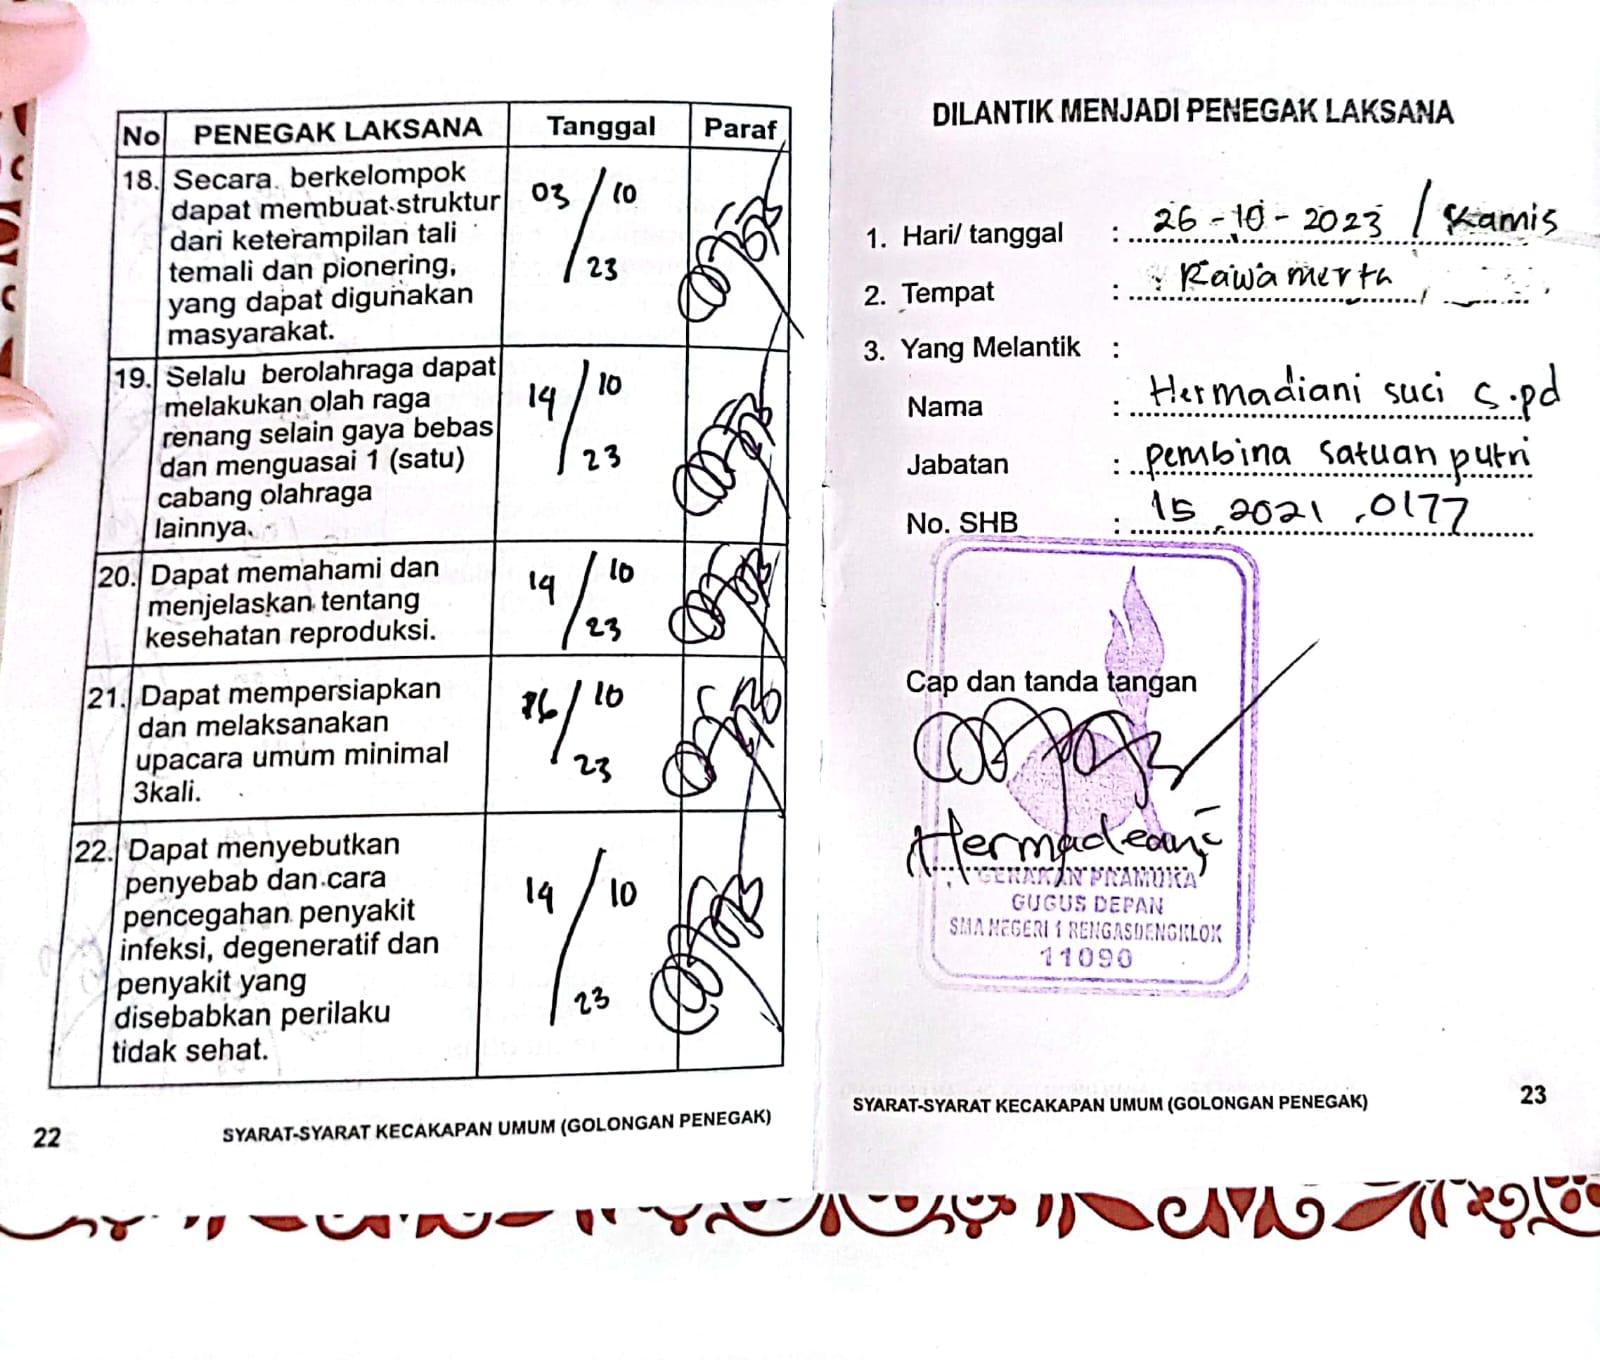 No PENEGAK LAKSANA Tanggal Paraf
18. Secara berkelompok
dapat membuat struktur
dari keterampilan tali
temali dan pionering,
yang dapat digunakan
masyarakat.
03/10
23
19. Selalu berolahraga dapat
melakukan olah raga
renang selain gaya bebas
dan menguasai 1 (satu)
cabang olahraga
lainnya.
14/10
23
20. Dapat memahami dan
menjelaskan tentang
kesehatan reproduksi.
14/10
23
21. Dapat mempersiapkan
dan melaksanakan
upacara umum minimal
3kali.
16/10
23
22. Dapat menyebutkan
penyebab dan cara
pencegahan penyakit
infeksi, degeneratif dan
penyakit yang
disebabkan perilaku
tidak sehat.
14/10
23
22 SYARAT-SYARAT KECAKAPAN UMUM (GOLONGAN PENEGAK)
DILANTIK MENJADI PENEGAK LAKSANA
1. Hari/ tanggal : 26-10-2023 / Kamis
2. Tempat : Rawamerta,
3. Yang Melantik :
Nama : Hermadiani suci S.pd
Jabatan : pembina satuan putri
No. SHB : 15.2021.0177
Cap dan tanda tangan
GERAKAN PRAMUKA
GUGUS DEPAN
SMA NEGERI 1 RENGASDENGKLOK
11090
SYARAT-SYARAT KECAKAPAN UMUM (GOLONGAN PENEGAK) 23